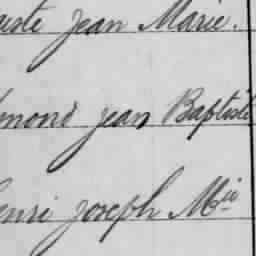 uste Jean Marie.
mond jean Baptiste
enri joseph M^ie